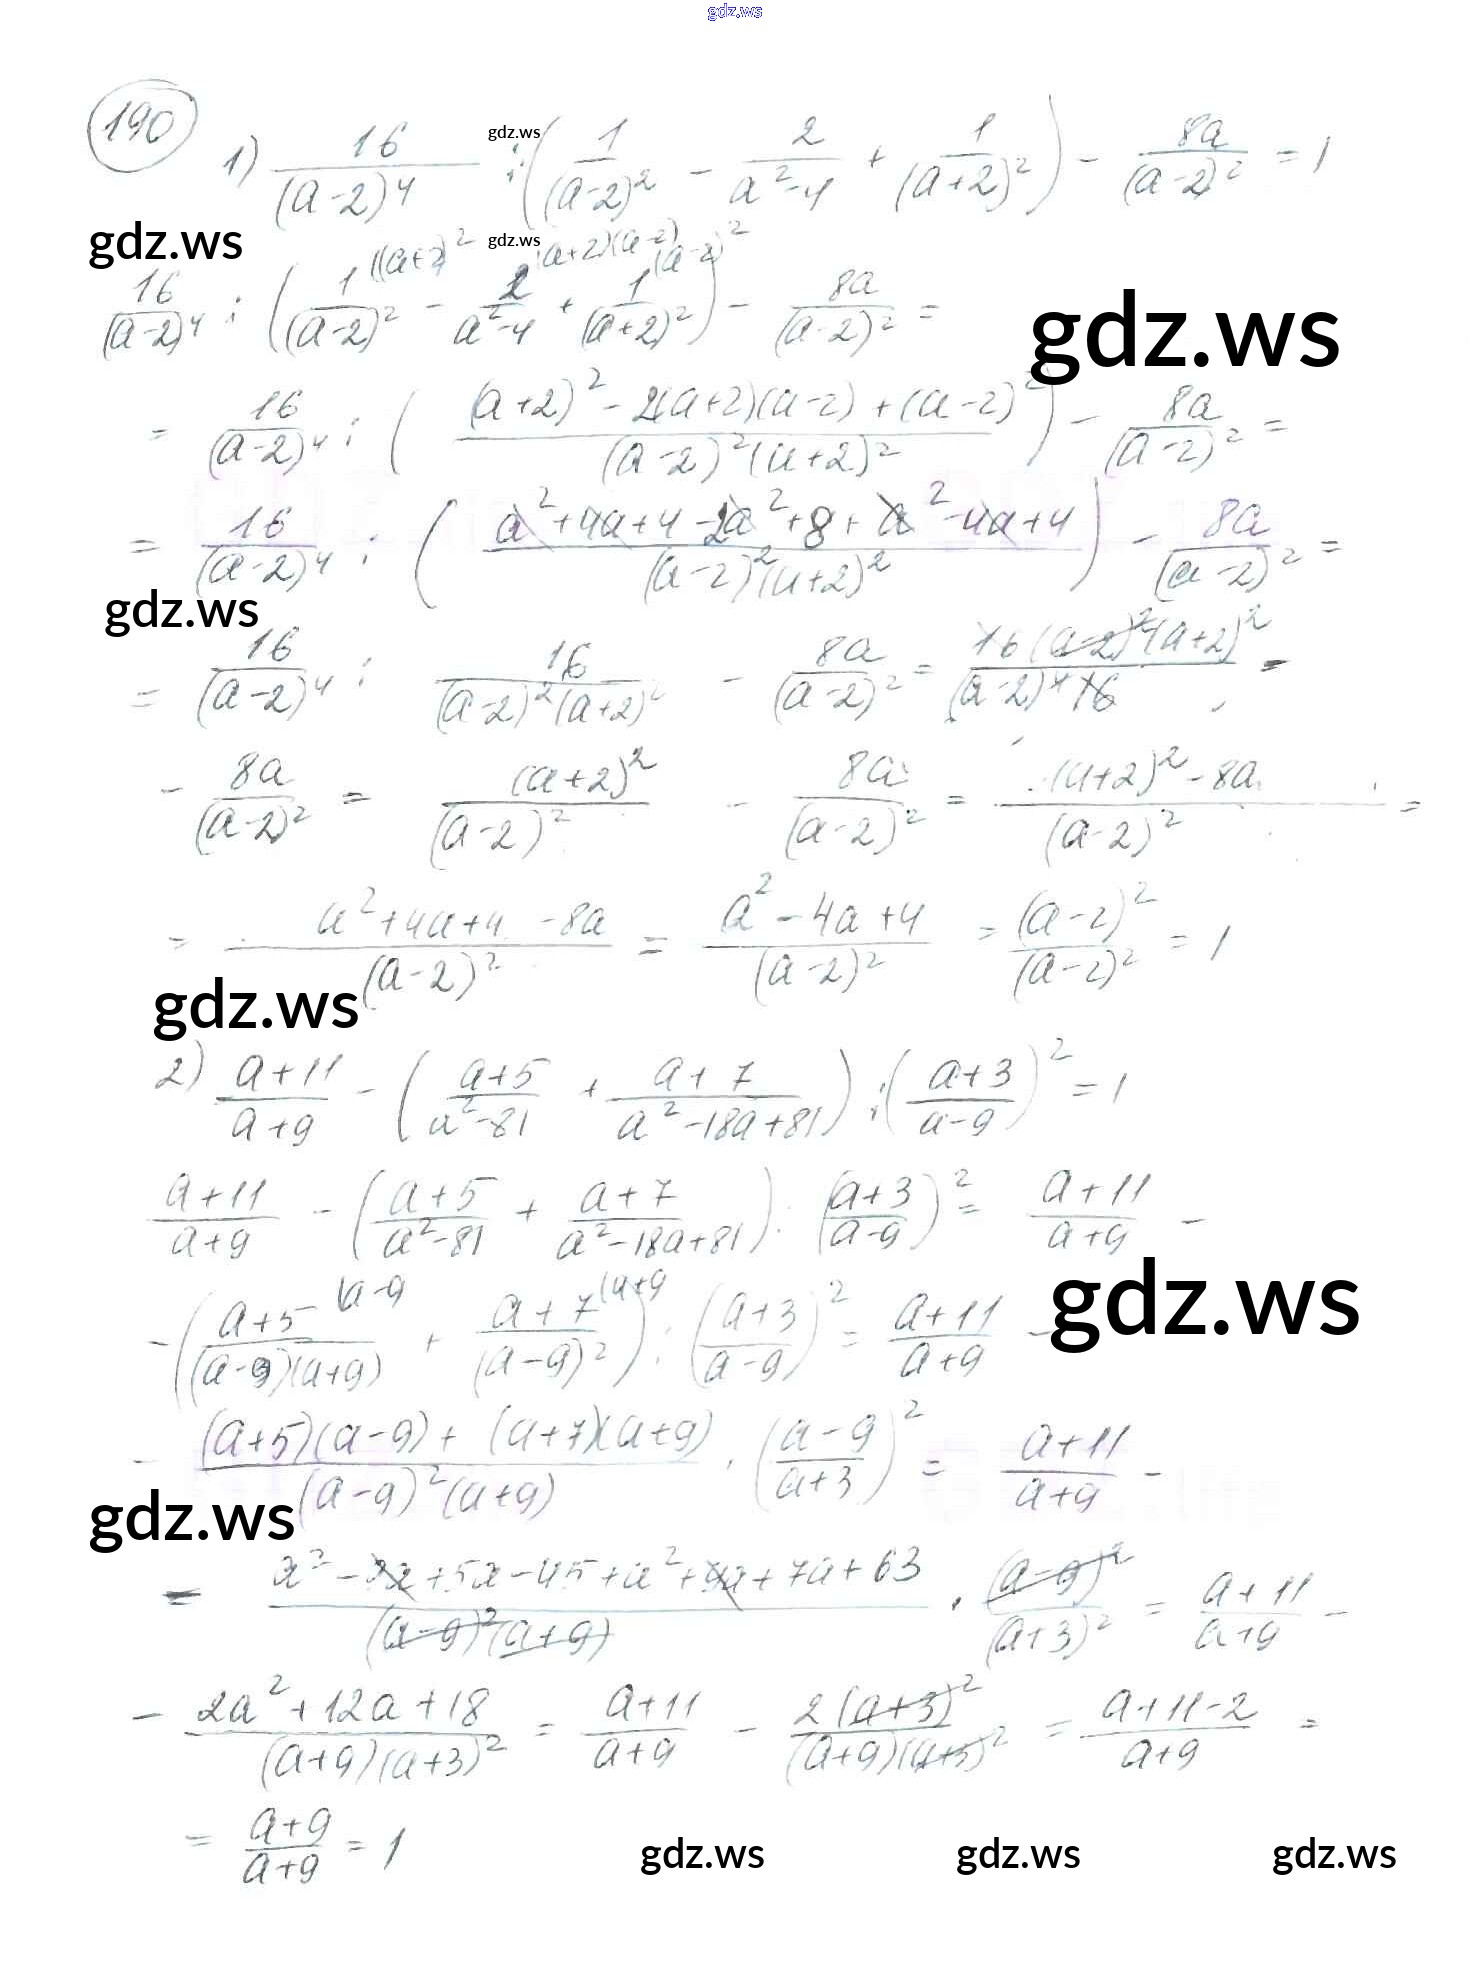 gdz.ws
190
1) 16/(a-2)^4 : (1/(a-2)^2 - 2/(a^2-4) + 1/(a+2)^2) - 8a/(a-2)^2 = 1
gdz.ws
gdz.ws gdz.ws
16/(a-2)^4 : (1/(a-2)^2 ((a+2)^2 - 2/(a^2-4) (a+2)(a-2) + 1/(a+2)^2 (a-2)^2) - 8a/(a-2)^2 =
gdz.ws
= 16/(a-2)^4 : ((a+2)^2 - 2(a+2)(a-2) + (a-2)^2)/((a-2)^2(a+2)^2) - 8a/(a-2)^2 =
= 16/(a-2)^4 : ((a^2+4a+4-2a^2+8+a^2-4a+4)/((a-2)^2(a+2)^2)) - 8a/(a-2)^2 =
gdz.ws
= 16/(a-2)^4 : 16/((a-2)^2(a+2)^2) - 8a/(a-2)^2 = 16(a-2)^2(a+2)^2/((a-2)^4 16) -
- 8a/(a-2)^2 = (a+2)^2/(a-2)^2 - 8a/(a-2)^2 = ((a+2)^2-8a)/(a-2)^2 =
= (a^2+4a+4-8a)/(a-2)^2 = (a^2-4a+4)/(a-2)^2 = (a-2)^2/(a-2)^2 = 1
gdz.ws
2) (a+11)/(a+9) - ((a+5)/(a^2-81) + (a+7)/(a^2-18a+81)) : ((a+3)/(a-9))^2 = 1
(a+11)/(a+9) - ((a+5)/(a^2-81) + (a+7)/(a^2-18a+81)) : ((a+3)/(a-9))^2 = (a+11)/(a+9) -
gdz.ws
- ((a+5)/((a-9)(a+9)) (a-9 + (a+7)/(a-9)^2 (a+9) : ((a+3)/(a-9))^2 = (a+11)/(a+9) -
- ((a+5)(a-9)+(a+7)(a+9))/((a-9)^2(a+9)) · ((a-9)/(a+3))^2 = (a+11)/(a+9) -
gdz.ws
- (a^2-9a+5a-45+a^2+9a+7a+63)/((a-9)^2(a+9)) · (a-9)^2/(a+3)^2 = (a+11)/(a+9) -
- (2a^2+12a+18)/((a+9)(a+3)^2) = (a+11)/(a+9) - 2(a+3)^2/((a+9)(a+3)^2) = (a+11-2)/(a+9) =
= (a+9)/(a+9) = 1
gdz.ws gdz.ws gdz.ws